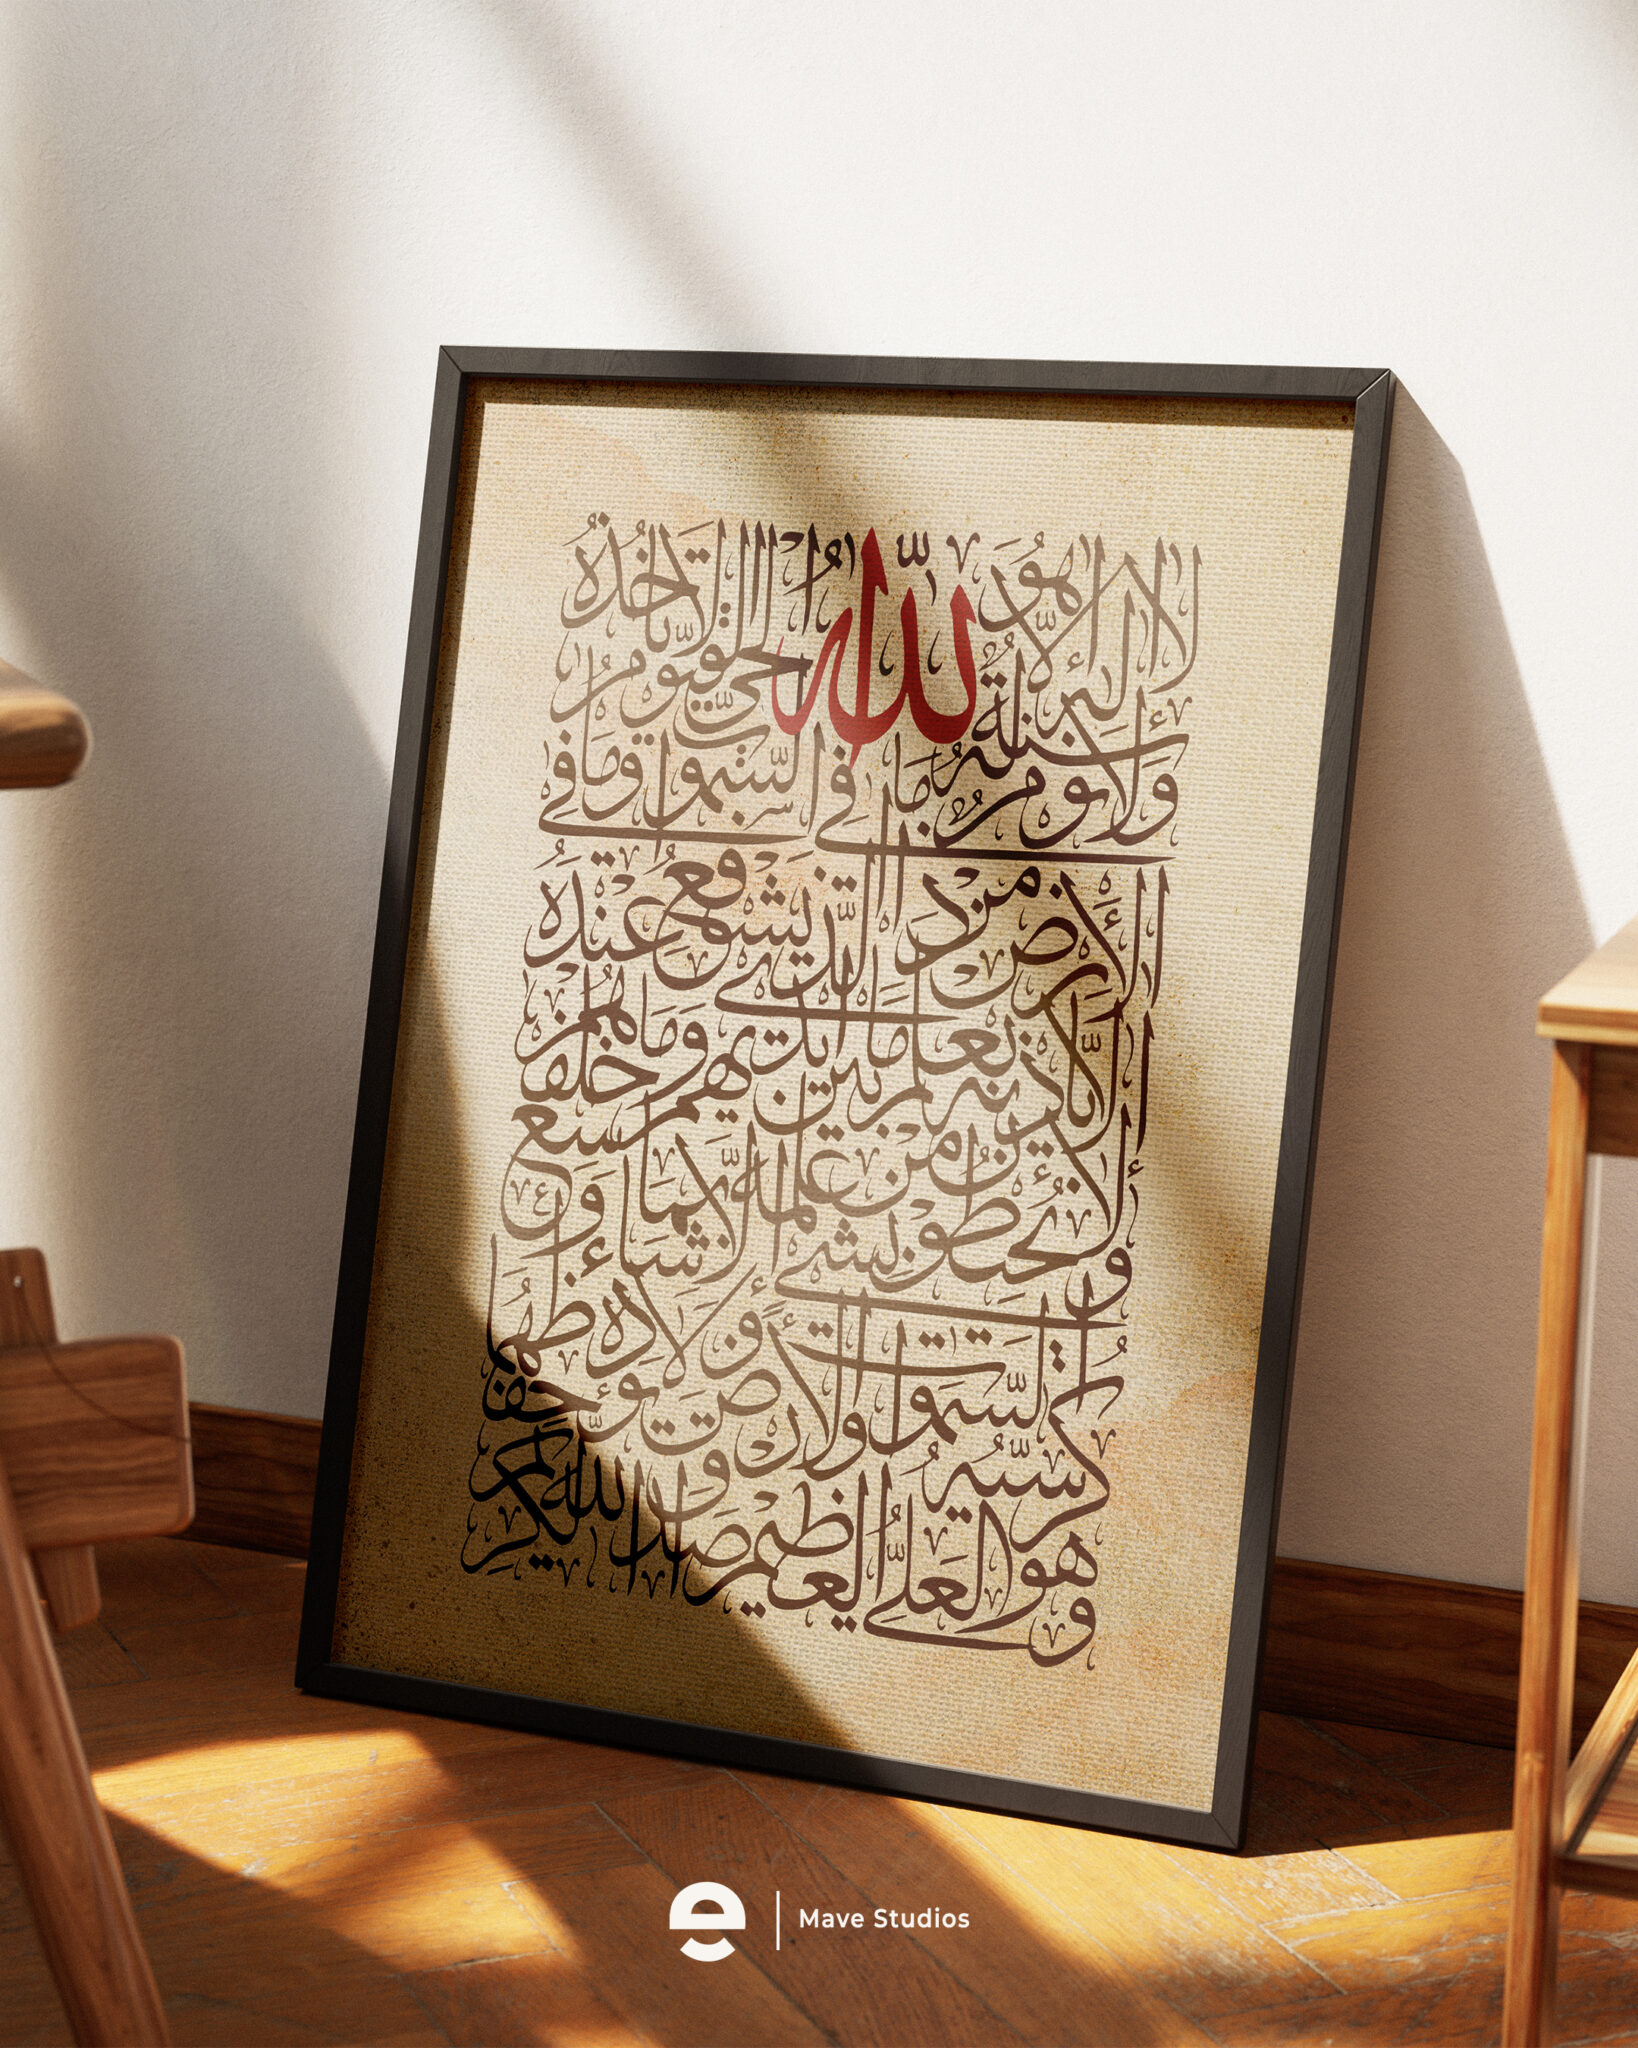 الله لا إله إلا هو الحي القيوم لا تأخذه
سنة ولا نوم له ما في السموات وما في
الأرض من ذا الذي يشفع عنده
إلا بإذنه يعلم ما بين أيديهم وما خلفهم
ولا يحيطون بشيء من علمه إلا بما شاء وسع
كرسيه السموات والأرض ولا يؤده حفظهما
وهو العلي العظيم صدق الله
Mave Studios